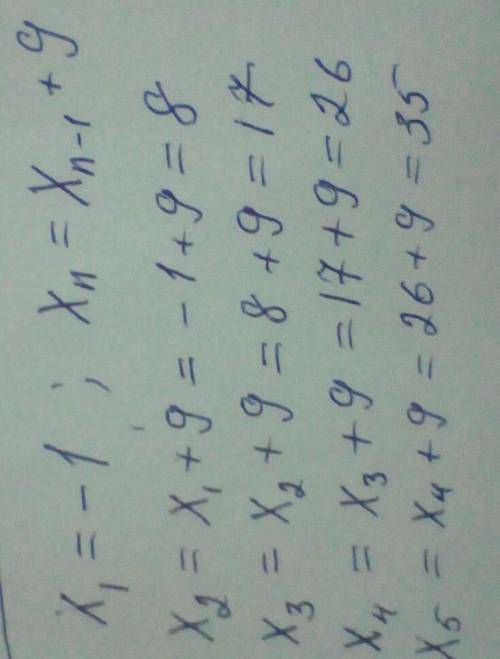 x₁ = -1 ; xₙ = xₙ₋₁ + 9
x₂ = x₁ + 9 = -1 + 9 = 8
x₃ = x₂ + 9 = 8 + 9 = 17
x₄ = x₃ + 9 = 17 + 9 = 26
x₅ = x₄ + 9 = 26 + 9 = 35